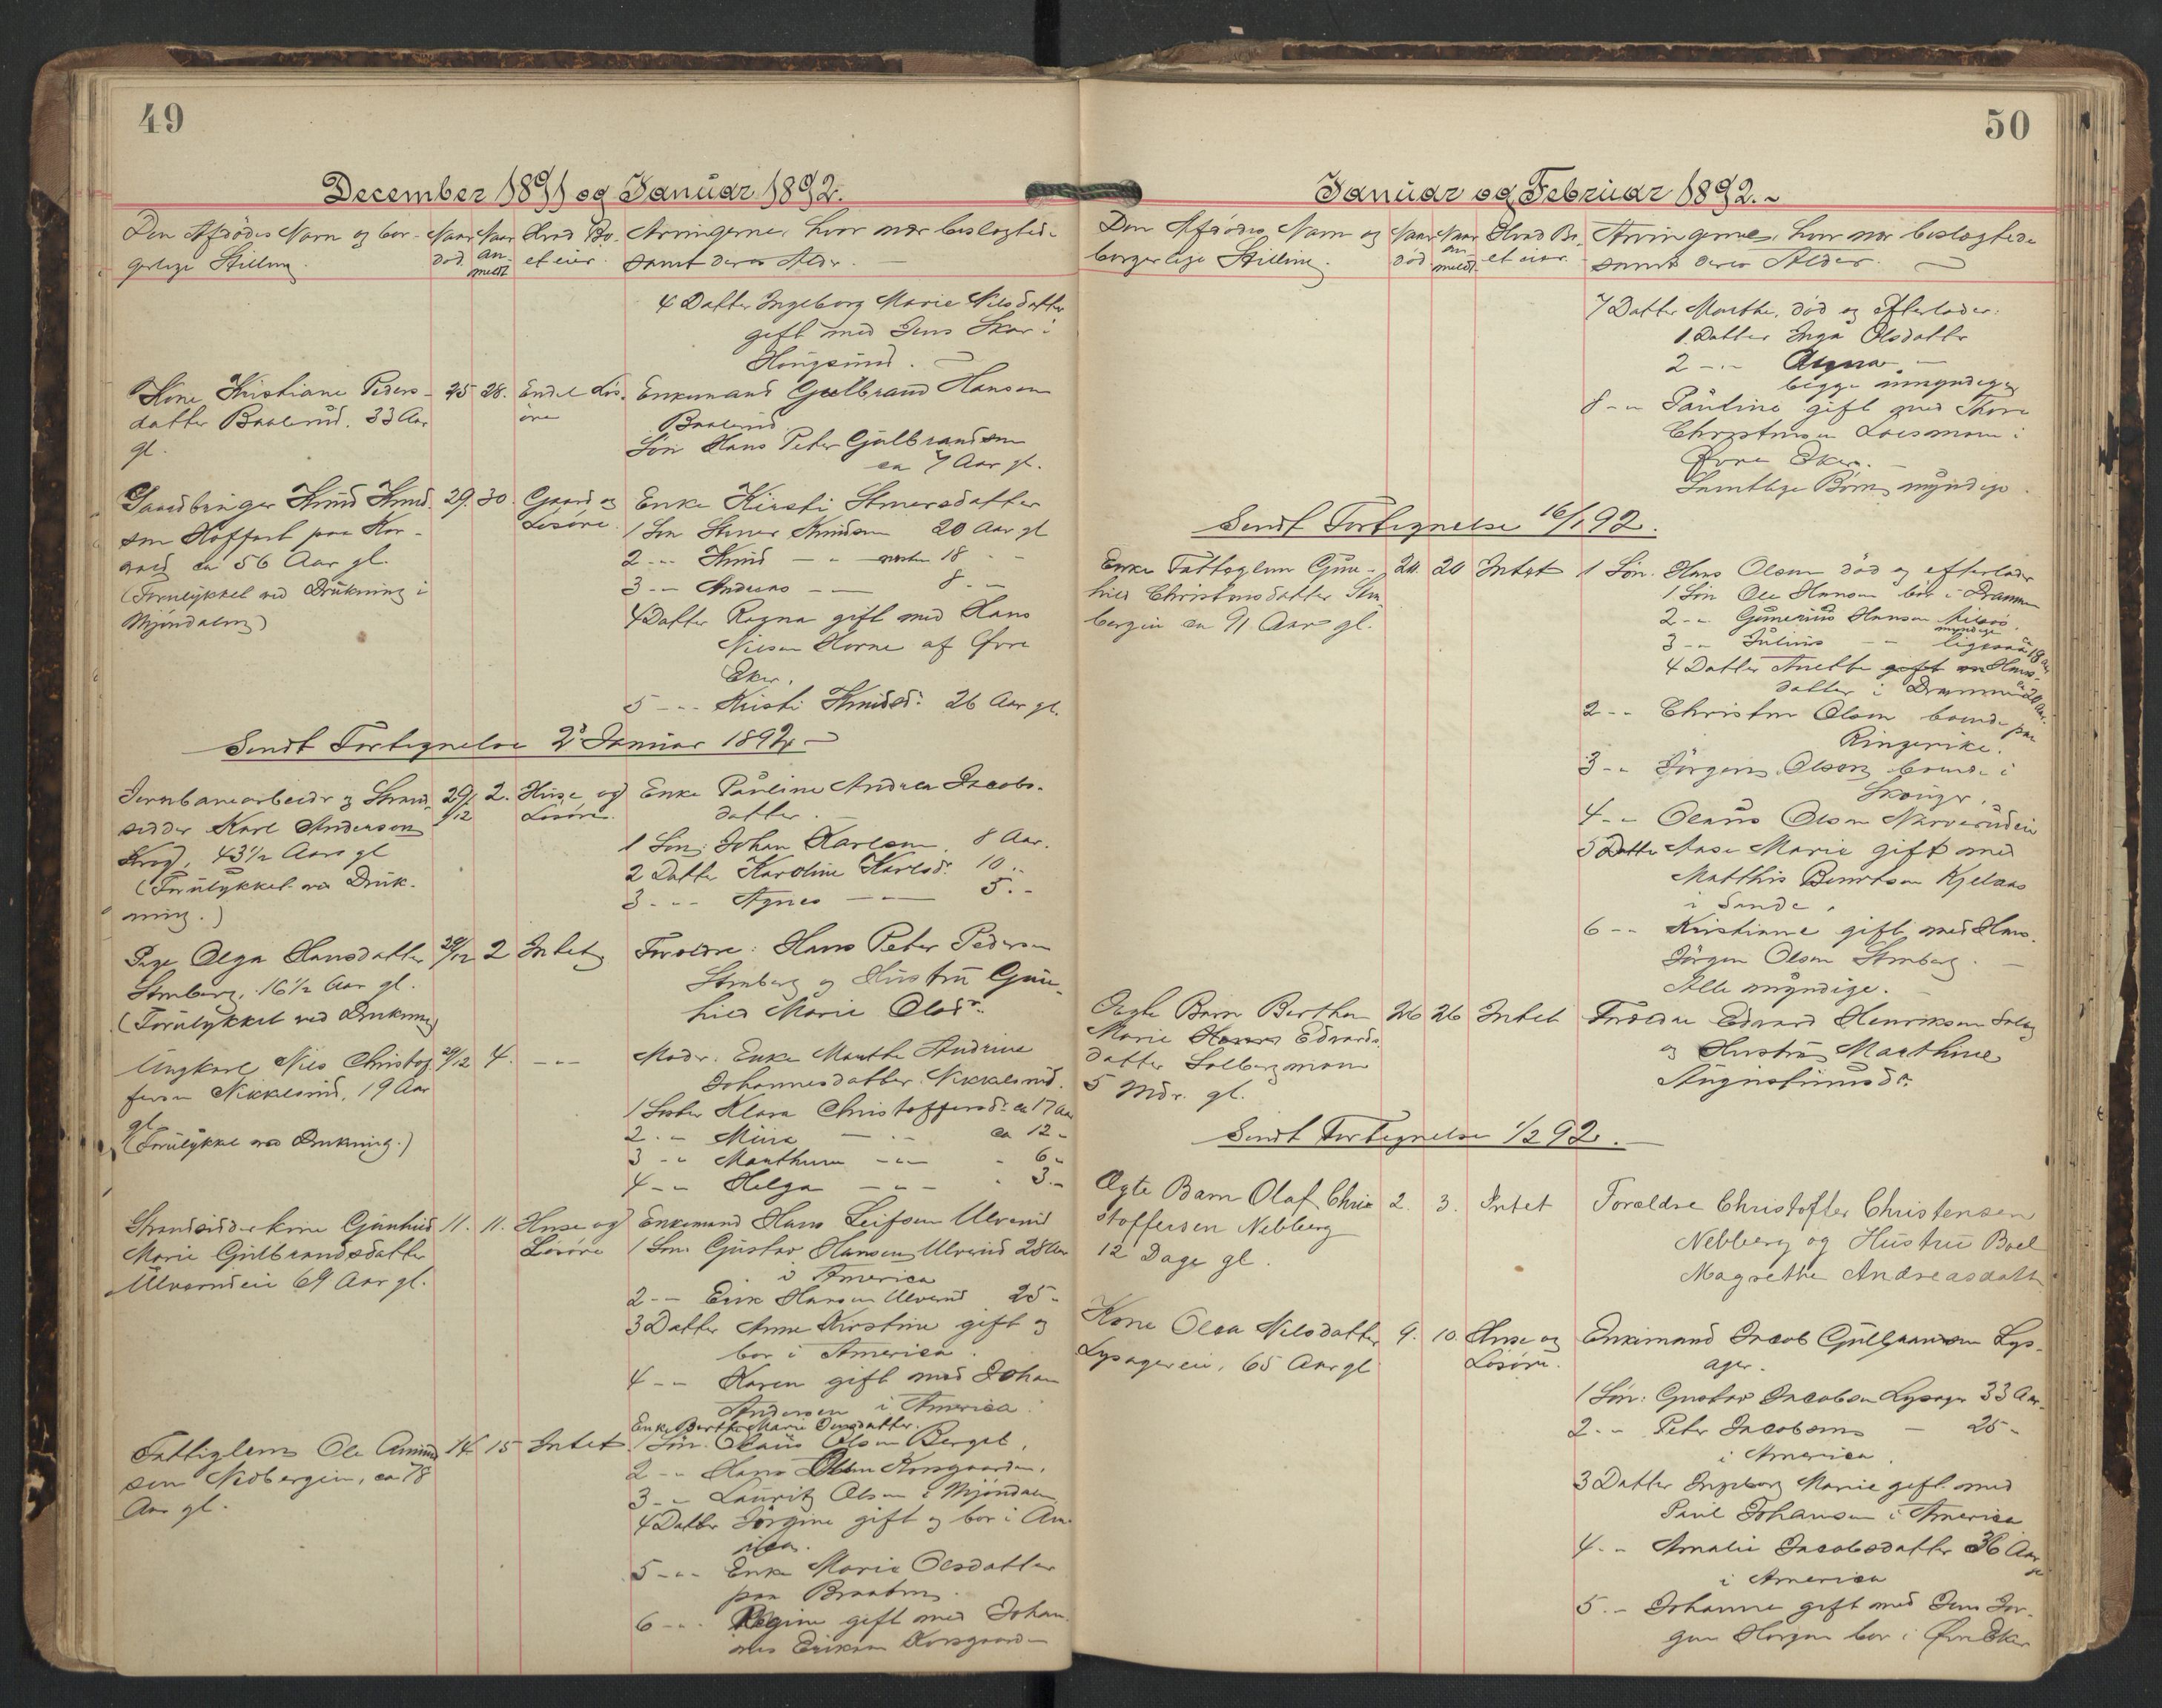 49
December 1891 og Januar 1892.
Den Afdødes Navn og bor-
gerlige Stilling.
Naar
død.
Naar
an-
meldt
Hvad Bo-
et eier.
Arvingerne, hvor nær beslægtede
samt deres Alder.
4 Datter Ingeborg Marie Nilsdatter
gift med Jens Skar i
Hougsund.
Kone Kristiane Peders-
datter Baalerud. 33 Aar
gl.
25
28.
Endel Løs-
øre
Enkemand Gulbrand Hansen
Baalerud
Søn Hans Peter Gulbrandsen
ca 7 Aar gl.
Gaardbruger Knud Knud-
sen Hoffart paa Hor-
gaard ca 56 Aar gl.
(Forulykket ved Drukning i
Mjøndalen)
29.
30.
Gaard og
Løsøre.
Enke Kirsti Stenersdatter
1 Søn Stener Knudsen 20 Aar gl
2 -- Knud — " næsten 18 - -
3 -- Andreas — — 8 - -
4 Datter Ragna gift med Hans
Nilsen Horne af Øvre
Eker.
5 - -- Kristi Knudsd: 26 Aar gl.
Sendt Fortegnelse 2 Januar 1892. —
Jernbanearbeider og Strand-
sidder Karl Anderson
Krog, 43½ Aar gl
(Forulykket ved Druk-
ning.)
29/12
2.
Huse og
Løsøre.
Enke Pauline Andrea Jacobs-
datter.
1 Søn: Johan Karlsen. 8 Aar.
2 Datter Karoline Karlsd: 10 --
3 - -- Agnes — — 5. -
Pige Olga Hansdatter
Stenberg, 16½ Aar gl.
(Forulykket ved Drukning)
29/12
2
Intet
Forældre: Hans Peter Pedersen
Stenberg og Hustru Gun-
hild Marie Olsdr.
Ungkarl Nils Christof-
fersen Nikkelsrud, 19 Aar
gl
(Forulykke ved Drukning.)
29/12
4.
- --
Moder. Enke Marthe Andrine
Johannesdatter Nikkelsrud.
1 Søster Klara Christoffersd: ca 17 Aar
2 - - Mina — - - ca 12 -
3 - " Marthina - " - - 6 -
4 - " Helga - " - " 3. -
Strandsidderkone Gunhild
Marie Gulbrandsdatter
Ulverudeie 69 Aar gl.
11.
11.
Huse og
Løsøre
Enkemand Hans Leifsen Ulverud
1 Søn Gustav Hansen Ulverud 28 Aar
i America
2 -- Erik Hansen Ulverud 25 -
3 Datter Anne Kirstine gift og
bor i America.
4 -- Karen gift med Johan
Andersen i America.
Fattiglem Ole Amund-
sen Nedbergeie, ca 78
Aar gl.
14
15
Intet
Enke Berthe Marie Jensdatter.
1 Søn. Olaus Olsen Berget,
2 - " Hans Olsen Korsgaarden.
3 - " Lauritz Olsen i Mjøndalen
4 Datter Jørgine gift og bor i Am-
rika.
5 - -- Enke Marie Olsdatter
paa Braaten.
6 - -- Regine gift med Johan-
nes Eriksen Korsgaarden
50
Januar og Februar 1892. ~
Den Afdødes Navn og
borgerlige Stilling.
Naar
død.
Naar
an
meldt.
Hvad Bo-
et eier.
Arvingerne, hvor nær beslægtede
samt deres Alder.
7 Datter Marthe, død og efterlader:
1 Datter Inga Olsdatter
2 - -- Agna —
begge umyndige
8 - " Pauline gift med Thore
Christensen Loesmoen i
Øvre Eker. —
Samtlige Børn myndige.
Sendt Fortegnelse 16/1 92.
Enke Fattiglem Gun-
hild Christensdatter Sten-
bergeie ca 91 Aar gl.
20
20
Intet
1 Søn. Hans Olsen død og efterlader
1 Søn Ole Hansen bor i Drammen
2 - " Gunerius Hansen
myndige
3 - " Julius — " ligesaa 18 Aar
4 Datter Anette gift Hans-
datter i Drammen 20 Aar.
2 -- Christen Olsen boende paa
Ringerike.
3 - " Jørgen Olsen boende i
Skouger.
4 - " Olaus Olsen Narverudeie
5 Datter Aase Marie gift med
Matthis Berntsen Kjelaas
i Sande.
6 -- Kristiane gift med Hans
Jørgen Olsen Stenberg. —
Alle myndige.
Ægte Barn Berthe
Marie Edvards-
datter Solbergmoen
5 Mdr. gl.
26
26
Intet
Forældre Edvard Henriksen Solbg
og Hustru Marthine
Augustinusdr.
Sendt Fortegnelse 1/2 92. —
Ægte Barn Olaf Chri
stoffersen Nebberg
12 Dage gl.
2.
3.
Intet
Forældre Christoffer Christensen
Nebberg og Hustru Boel
Magrethe Andreasdatt
Kone Olea Nilsdatter
Lysagereie, 65 Aar gl
9.
10.
Huse og
Løsøre.
Enkemand Jacob Gulbrandsen Lys-
ager.
1 Søn: Gustav Jacobsen Lysager 33 Aar
2 - " Peter Jacobsen — 25 -
i America.
3 Datter Ingeborg Marie gift med
Paul Johansen i America
4 - " Amalie Jacobsdatter 36 Aar
i America
5. - Johanne gift med Jens Jør-
gen Horgen bor i Øvre Eker